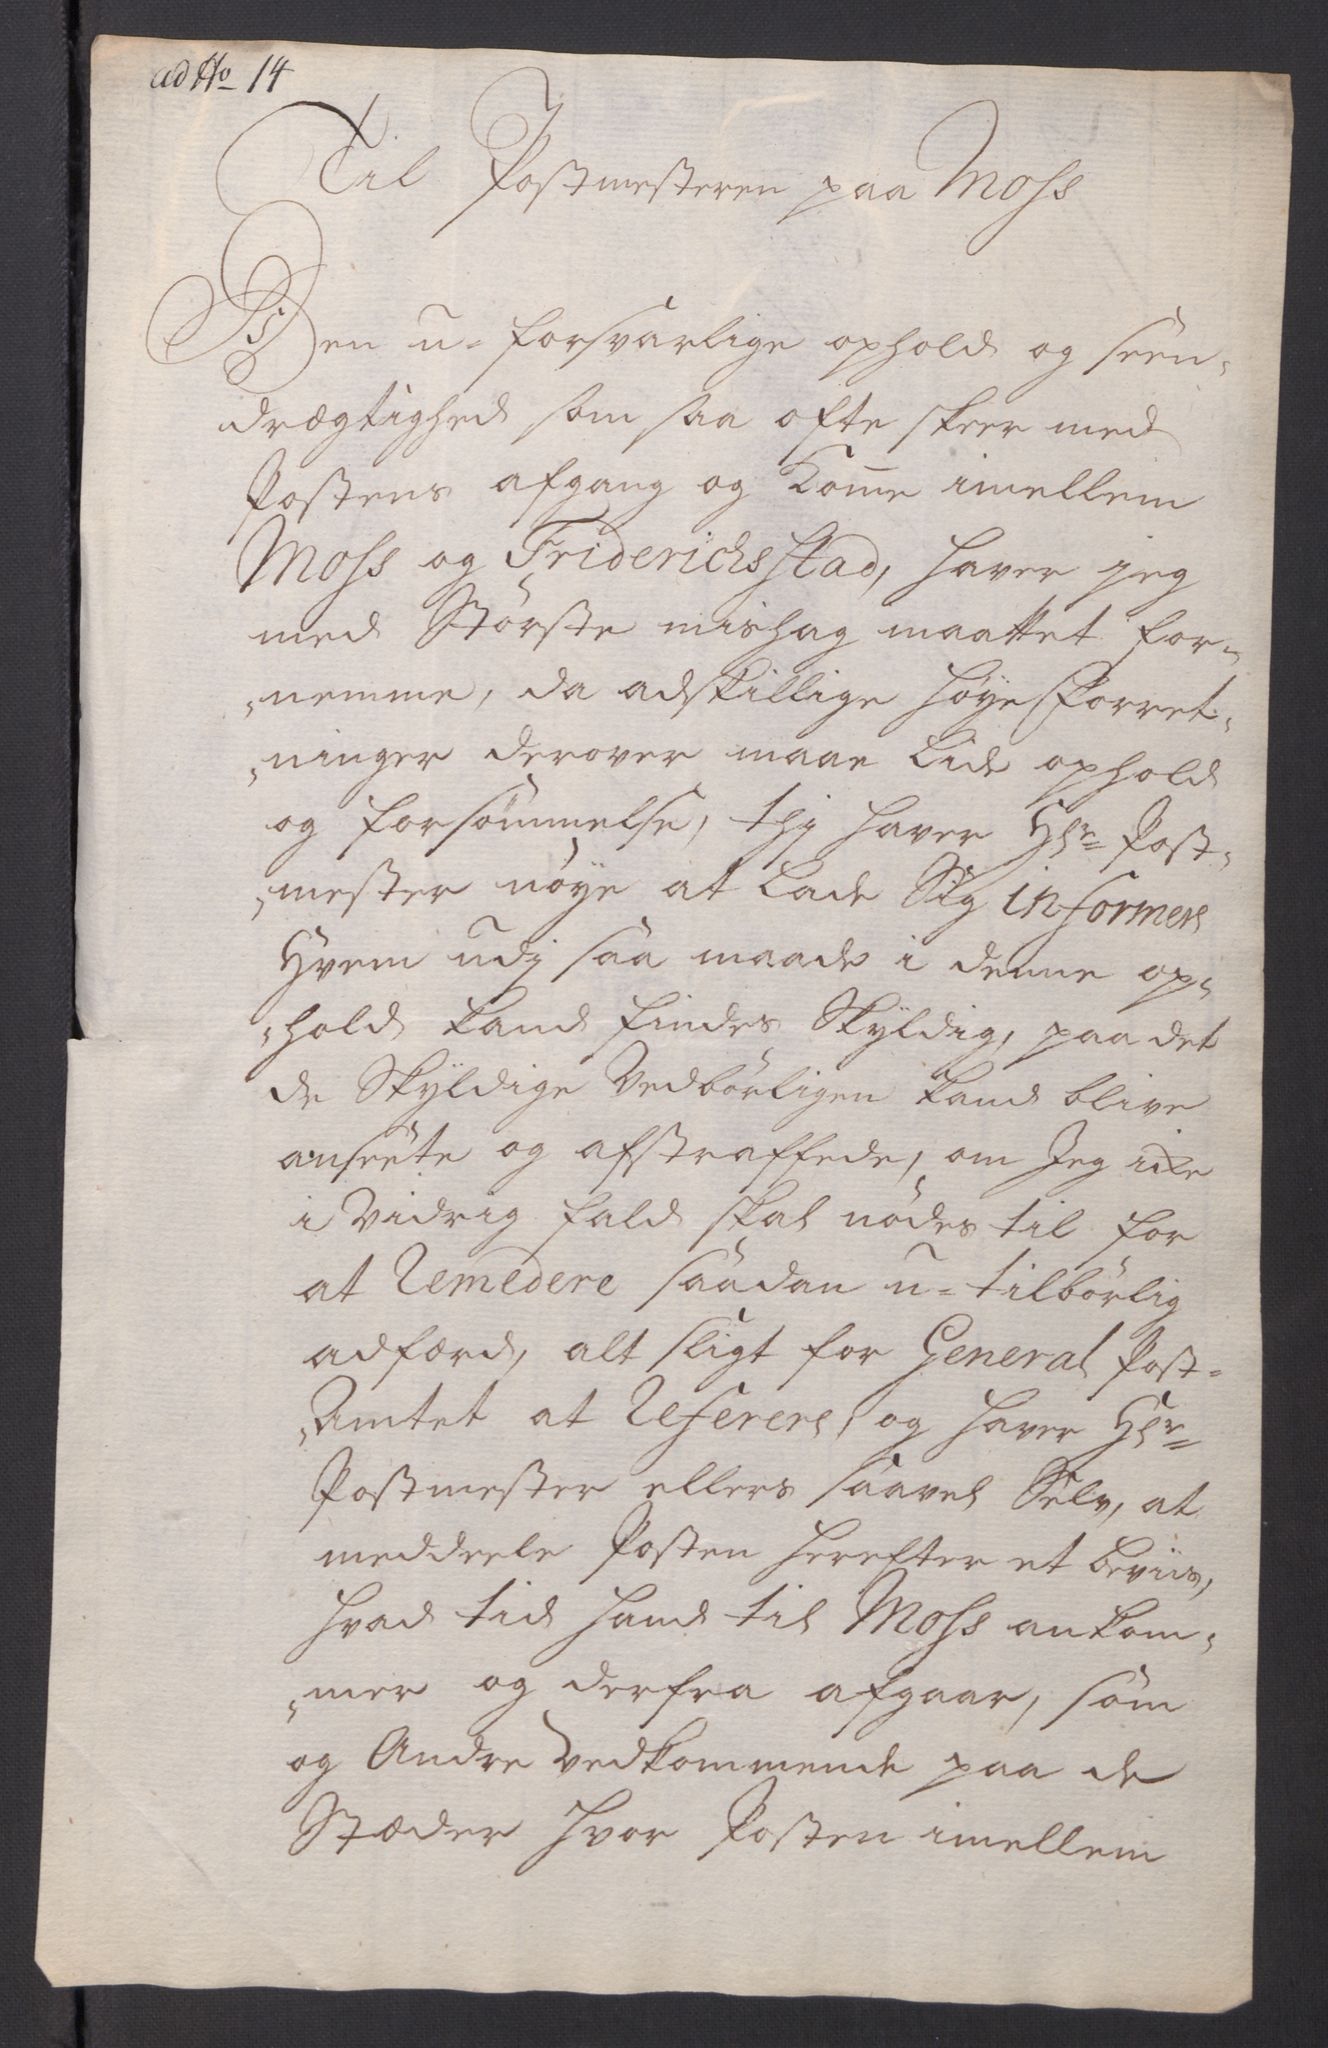 ad No 14
Til Postmesteren paa Moss
Den u-forsvarlige ophold og seen-
drægtighed som saa ofte skeer med
Postens afgang og Kom̅e imellem
Moss og Friderichsstad, haver jeg
med Störste mishag maattet for-
-nemme, da adskillige høye Forret-
-ninger derover maae Lide ophold
og forsömmelse, thj haver Hr= Post-
-mester nöye at Lade Sig informere
Hvem udj saa maade i denne op-
-hold kand findes Skÿldig, paa det
de Skÿldige Vedbörligen kand blive
anseete og afstraffede, om Jeg icke
i Vidrig fald skal nödes til for
at Remedere saadan u-tilbörlig
adfærd, alt sligt for General Post-
-Amtet at Referere, og haver Hr=
Postmester ellers saavel Selv, at
meddeele Posten herefter et beviis,
hvad tid hand til Moss ankom-
-mer og derfra afgaar, som
og Andre Vedkommende paa de
Stæder hvor Posten imellem